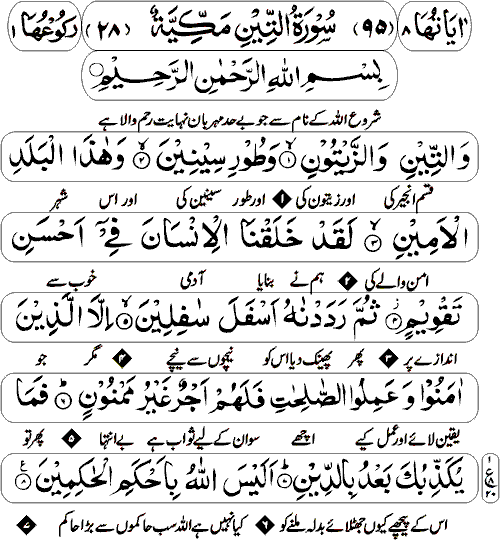 اٰيَاتُهَا ٨ (٩٥) سُوْرَةُ التِّيْنِ مَكِّيَّةٌ (٢٨) رُكُوْعُهَا ١
بِسْمِ اللّٰهِ الرَّحْمٰنِ الرَّحِيْمِ
شروع اللہ کے نام سے جو بے حد مہربان نہایت رحم والا ہے
وَالتِّيْنِ وَالزَّيْتُوْنِ ۙ‏١ وَطُوْرِ سِيْنِيْنَ ۙ‏٢ وَهٰذَا الْبَلَدِ
قسم انجیر کی اور زیتون کی ۱ اور طور سینین کی اور اس شہر
الْاَمِيْنِ ۙ‏٣ لَقَدْ خَلَقْنَا الْاِنْسَانَ فِيْۤ اَحْسَنِ
امن والے کی ۲ ہم نے بنایا آدمی خوب سے
تَقْوِيْمٍ ۫‏٤ ثُمَّ رَدَدْنٰهُ اَسْفَلَ سٰفِلِيْنَ ۙ‏٥ اِلَّا الَّذِيْنَ
اندازے پر ۳ پھر پھینک دیا اس کو نیچوں سے نیچے ۴ مگر جو
اٰمَنُوْا وَعَمِلُوا الصّٰلِحٰتِ فَلَهُمْ اَجْرٌ غَيْرُ مَمْنُوْنٍ ؕ‏٦ فَمَا
یقین لائے اور عمل کیے اچھے سو ان کے لیے ثواب ہے بے انتہا ۵ پھر تو
يُكَذِّبُكَ بَعْدُ بِالدِّيْنِ ؕ‏٧ اَلَيْسَ اللّٰهُ بِاَحْكَمِ الْحٰكِمِيْنَ ۠‏٨
اس کے پیچھے کیوں جھٹلائے بدلہ ملنے کو ۶ کیا نہیں ہے اللہ سب حاکموں سے بڑا حاکم ۷